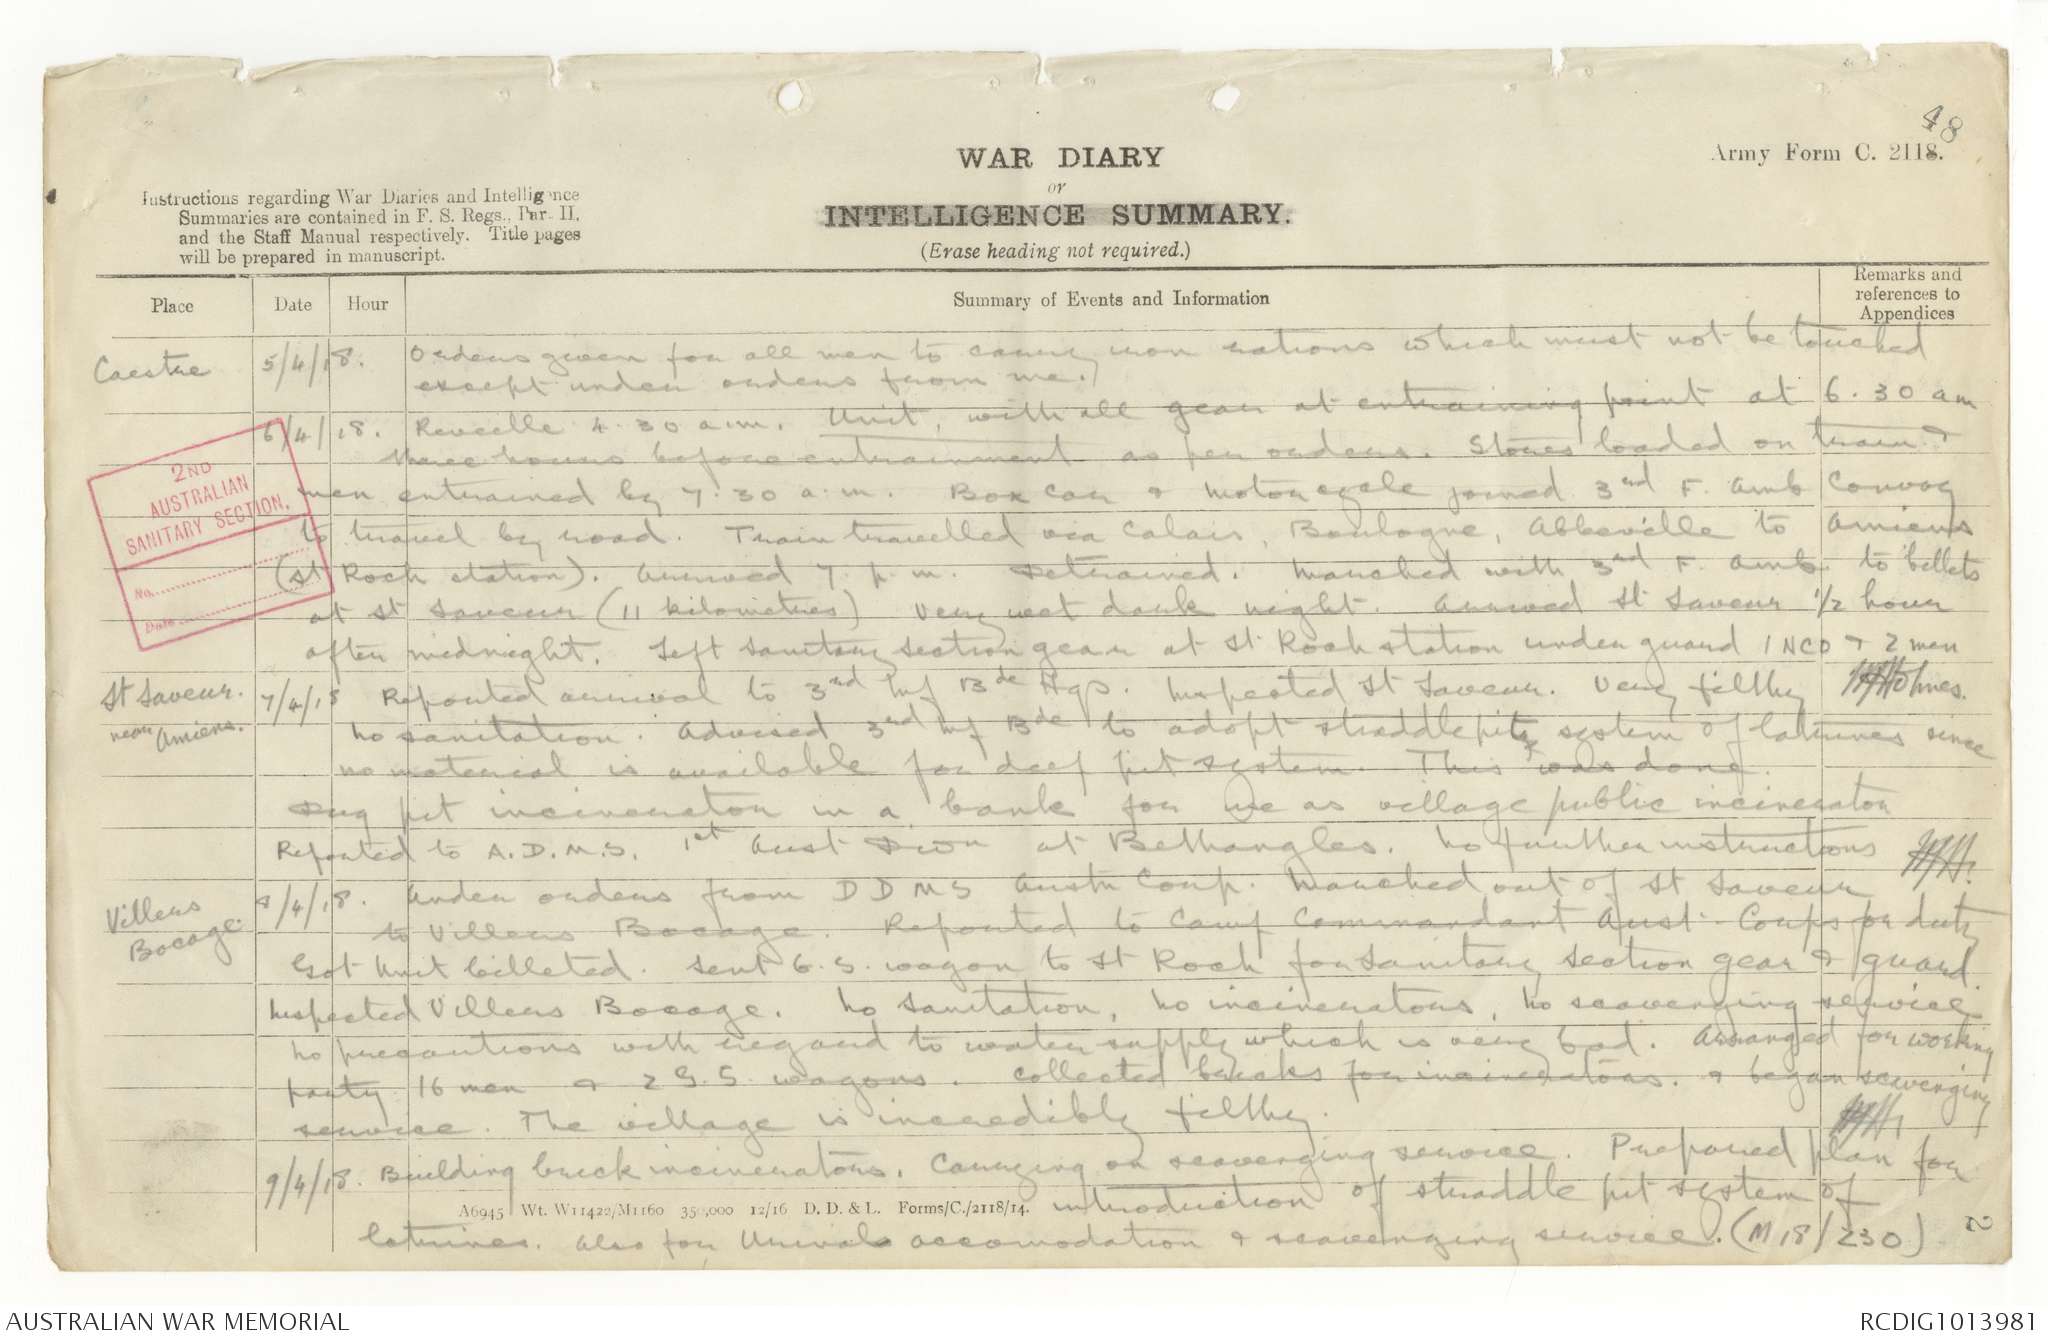 48
Army Form C. 2118.
WAR DIARY
or
INTELLIGENCE SUMMARY.
(Erase heading not required.)
Instructions regarding War Diaries and Intelligence
Summaries are contained in F. S. Regs., Part II,
and the Staff Manual respectively. Title pages
will be prepared in manuscript.
Place Date Hour Summary of Events and Information Remarks and references to Appendices
Caestre 5/4/18. Orders given for all men to carry iron rations which must not be touched
except under orders from me.
6/4/18. Reveille 4.30 a.m. Unit, with all gear at entraining point at 6.30 am
three hours before entrainment as per orders. Stores loaded on train &
men entrained by 7.30 a.m. Box car & motor cycle joined 3rd F. Amb Convoy
to travel by road. Train travelled via Calais, Boulogne, Abbeville to Amiens
(St Roch station). Arrived 7 p.m. Detrained. Marched with 3rd F. Amb to billets
at St Saveur (11 kilometres) Very wet dark night. Arrived St Saveur 1/2 hour
after midnight. Left Sanitary Section gear at St Roch station under guard 1 NCO & 2 men
HFHolmes.
2ND
AUSTRALIAN
SANITARY SECTION.
No.
Date
St Saveur. near Amiens. 7/4/18 Reported arrival to 3rd Inf Bde Hqs. Inspected St Saveur. Very filthy
no sanitation. Advised 3rd Inf Bde to adopt straddle pit system of latrines since
no material is available for deep pit system. This was done.
Dug pit incinerator in a bank for use as village public incinerator
Reported to A.D.M.S. 1st Aust Divn at Bethangles. No further instructions HFH.
Villers Bocage 8/4/18. Under orders from DDMS Austn Corp. Marched out of St Saveur
to Villers Bocage. Reported to Camp Commandant Aust. Corps for duty
Got Unit billeted. Sent G.S. wagon to St Roch for Sanitary Section gear & guard.
Inspected Villers Bocage. No sanitation, no incinerators, no scavenging service
no precautions with regard to water supply which is very bad. Arranged for working
party 16 men & 2 G.S. wagons. Collected bricks for incinerators. & began scavenging
service. The village is incredibly filthy. HFH.
9/4/18. Building brick incinerators. Carrying on scavenging service. Prepared plan for
introduction of straddle pit system of
latrines. Also for Urinal accomodation & scavenging service. (M18/230)
A6945 Wt. W11422/M1160 350,000 12/16 D. D. & L. Forms/C./2118/14.
2
AUSTRALIAN WAR MEMORIAL
RCDIG1013981